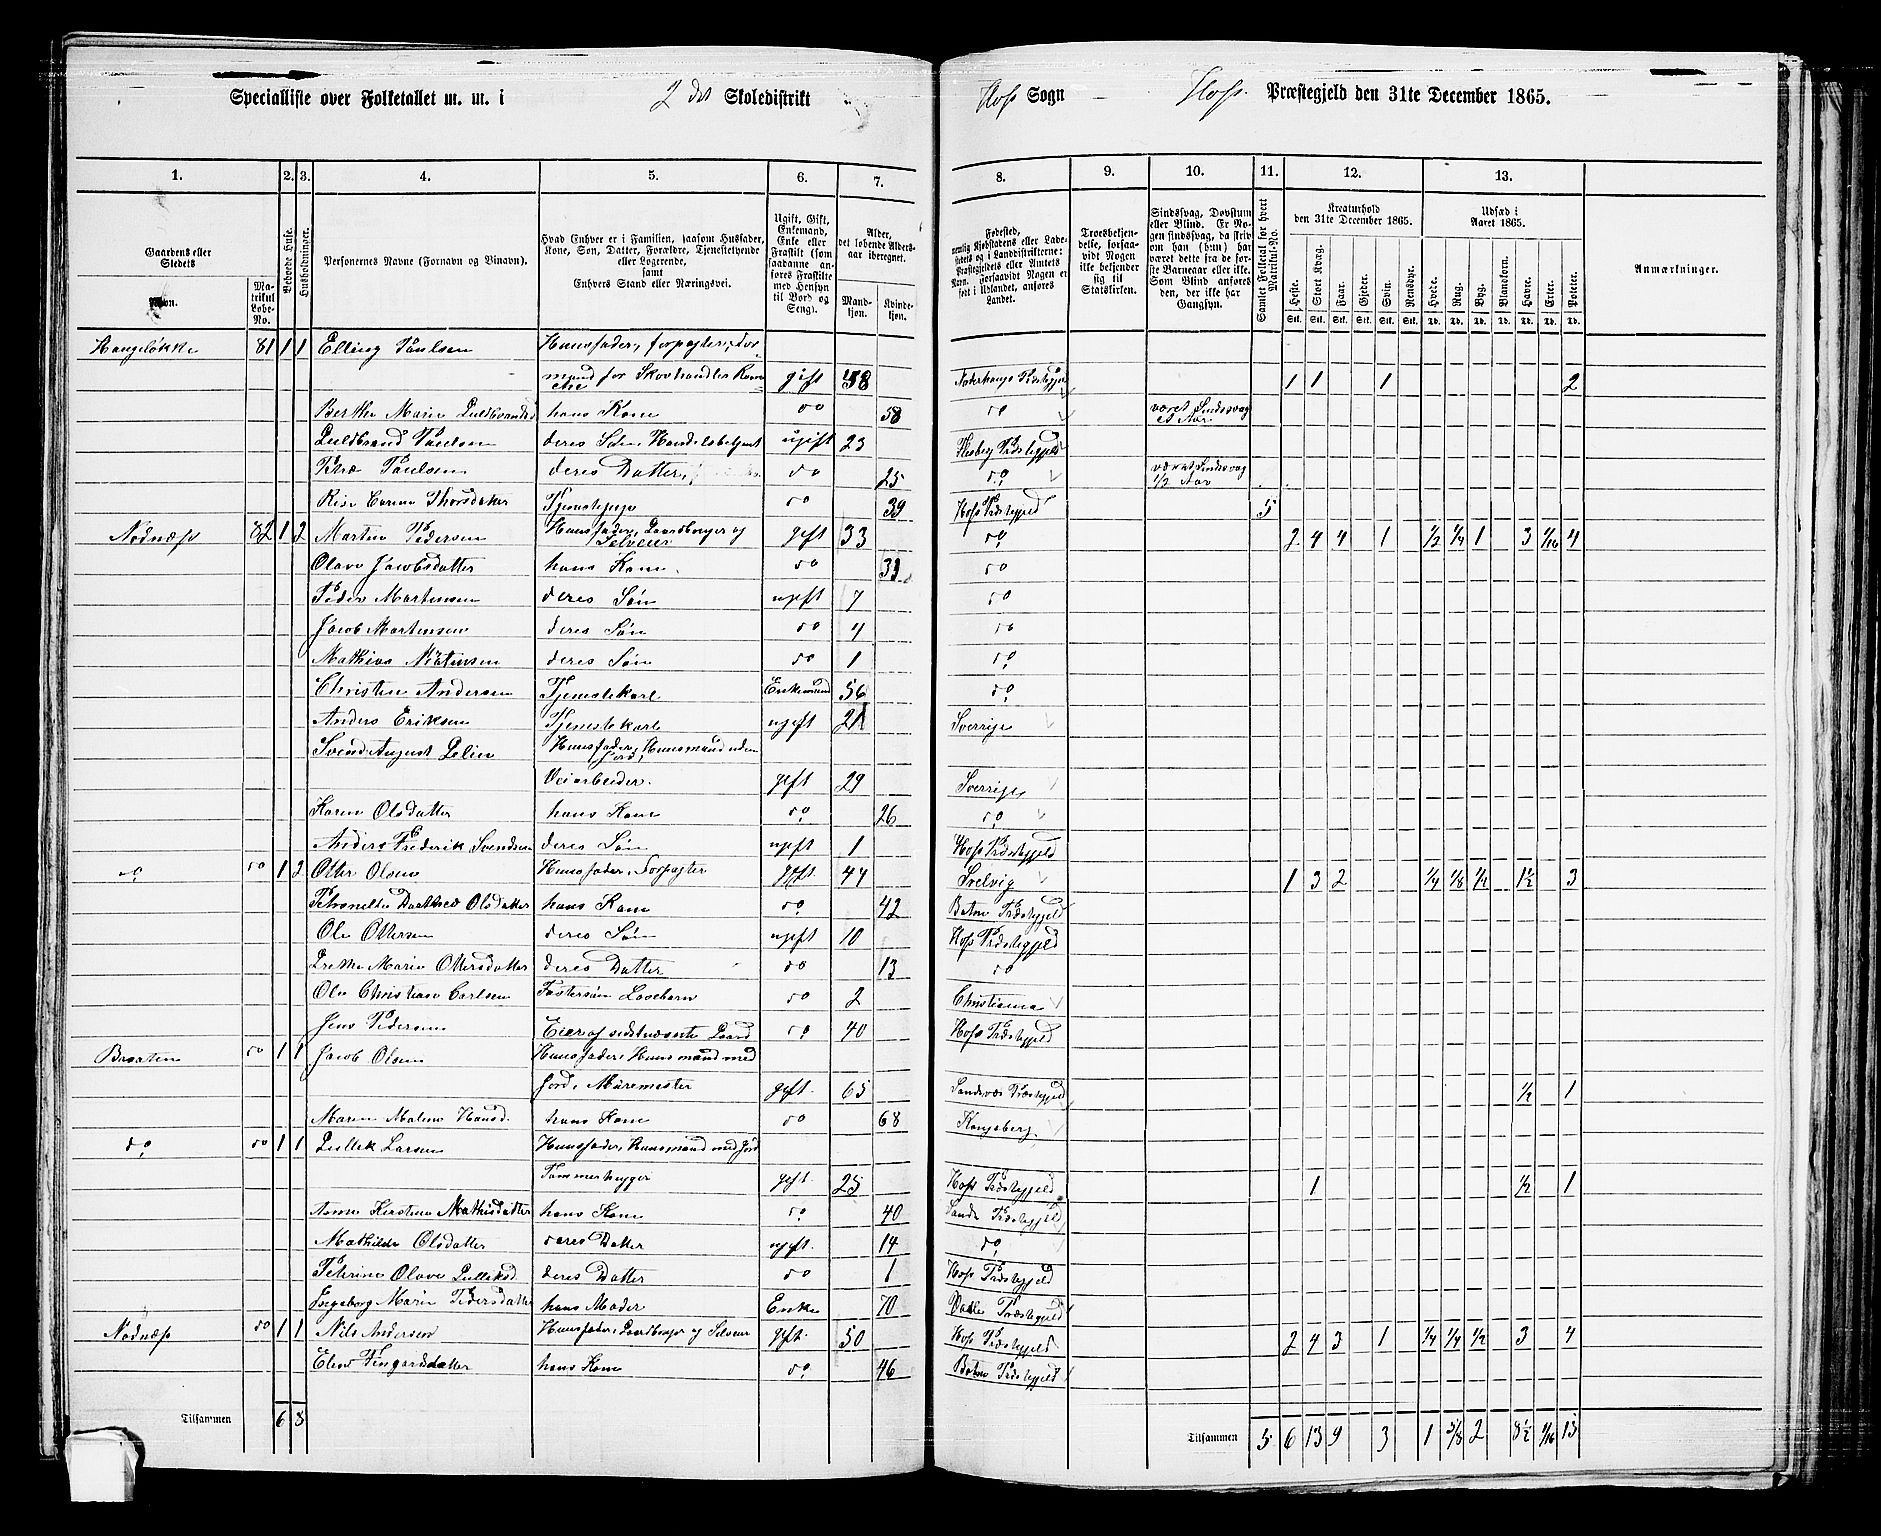 Specialliste over Folketallet m. m. i 2det Skoledistrikt
Hofs Sogn Hofs Præstegjeld den 31te December 1865.
1. 2. 3. 4. 5. 6. 7. 8. 9. 10. 11. 12. 13.
Gaardens eller Stedets Navn.
Matrikul Løbe-No.
Beboede Huse.
Husholdninger.
Personernes Navne (Fornavn og Tilnavn).
Hvad Enhver er i Familien, saasom Husfader, Kone, Søn, Datter, Forældre, Tjenestetyende eller Logerende, samt Enhvers Stand eller Næringsvei.
Ugift, Gift, Enkemand, Enke eller Fraskilt (som saadanne anføres Fraskilte med Hensyn til Bord og Seng).
Alder, det løbende Alders-aar iberegnet.
Mandkjøn. Kvindekjøn.
Fødested,
Troesbekjendelse, forsaavidt Nogen ikke bekjender sig til Statskirken.
Sindssvag, Døvstum eller Blind.
Kreaturhold den 31te December 1865.
Heste. Stort Kvæg. Faar. Gjeder. Svin. Rensdyr.
Udsæd i Aaret 1865.
Hvede. Rug. Byg. Blandkorn. Havre. Erter. Poteter.
Anmærkninger.
Hangeløkke 81 1 1 Elling Poulsen Huusfader, forpagter,
mand for Skovhandler gift 58 Præstegjeld 1 1 1 2
Berthe Marie Guldbrandsd hans Kone do 58 do været Sindssvag et Aar
Guldbrand Poulsen deres Søn, Handelsbetjent ugift 23 Flesberg Præstegjeld
Poulsen deres Datter, do 25 do været Sindssvag 1/2 Aar
Thorsdatter Tjenestepige do 39 Hofs Præstegjeld 5
Nodnæs 82 1 2 Martin Pedersen Huusfader, Gaardbruger og Selveier gift 33 do 2 4 4 1 1/2 1/4 1 3 1/16 4
Olave Jacobsdatter hans Kone do 33 do
Peder Martinsen deres Søn ugift 7 do
Jacob Martinsen deres Søn do 4 do
Mathias Martinsen deres Søn do 1 do
Christen Andersen Tjenestekarl Enkemand 56 do
Anders Eriksen Tjenestekarl ugift 21 Sverrige
Svend August Huusfader, Huusmand uden Jord,
Veiarbeider. gift 29 Sverrige
Karen Olsdatter hans Kone do 26 do
Anders Frederik Svendsen deres Søn ugift 1 Hofs Præstegjeld
do do 1 2 Otter Olsen Huusfader, Forpagter gift 44 Svelvig 1 3 2 1/4 1/8 1/2 1 1/2 3
Petronelle Dorthea Olsdatter hans Kone do 42 Botne Præstegjeld
Ole Ottersen deres Søn ugift 10 Hofs Præstegjeld
Grethe Marie Ottersdatter deres Datter do 13 do
Ole Christian Carlsen Fostersøn do 2 Christiania
Jens Pedersen Eier af sidstnævnte Gaard do 40 Hofs Præstegjeld
Braaten do 1 1 Jacob Olsen Huusfader, Huusmand med
Jord, Muremester gift 65 Sandsvær Præstegjeld 1/2 1
Maren Malene Hansd. hans Kone do 68 Kongsberg,
do do 1 1 Gullik Larsen Huusfader, Huusmand med Jord
Tømmerhugger gift 25 Hofs Præstegjeld 1 1/2 1
Anne Kirstine Mathisdatter hans Kone do 40 Sande Præstegjeld
Mathilde Olsdatter deres Datter ugift 14 do
Petrine Olave Gulliksd. deres Datter do 1 Hofs Præstegjeld
Ingeborg Marie Pedersdatter hans Moder Enke 70 Præstegjeld
Nodnæs do 1 1 Nils Andersen Huusfader, Gaardbruger og Selveier gift 50 Hofs Præstegjeld 2 4 3 1 1/4 1/4 1/2 3 4
hans Kone do 46 Botne Præstegjeld
Tilsammen 6 8
Tilsammen 5 6 13 9 3 1 5/8 2 8 1/2 1/16 15